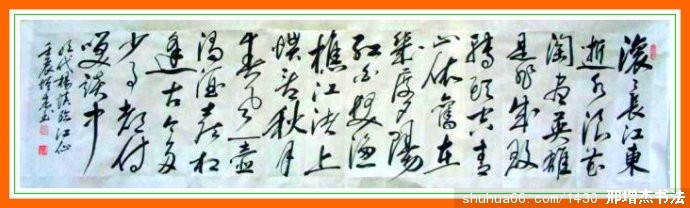 滚〻長江東
逝水浪花
淘盡英雄
是非成敗
轉頭空青
山依舊在
幾度夕陽
紅白髮漁
樵江渚上
慣看秋月
春風一壺
濁酒喜相
逢古今多
少事都付
笑談中
明代楊慎臨江仙
壬辰增杰书
shuhua66.com/1430 邢增杰书法